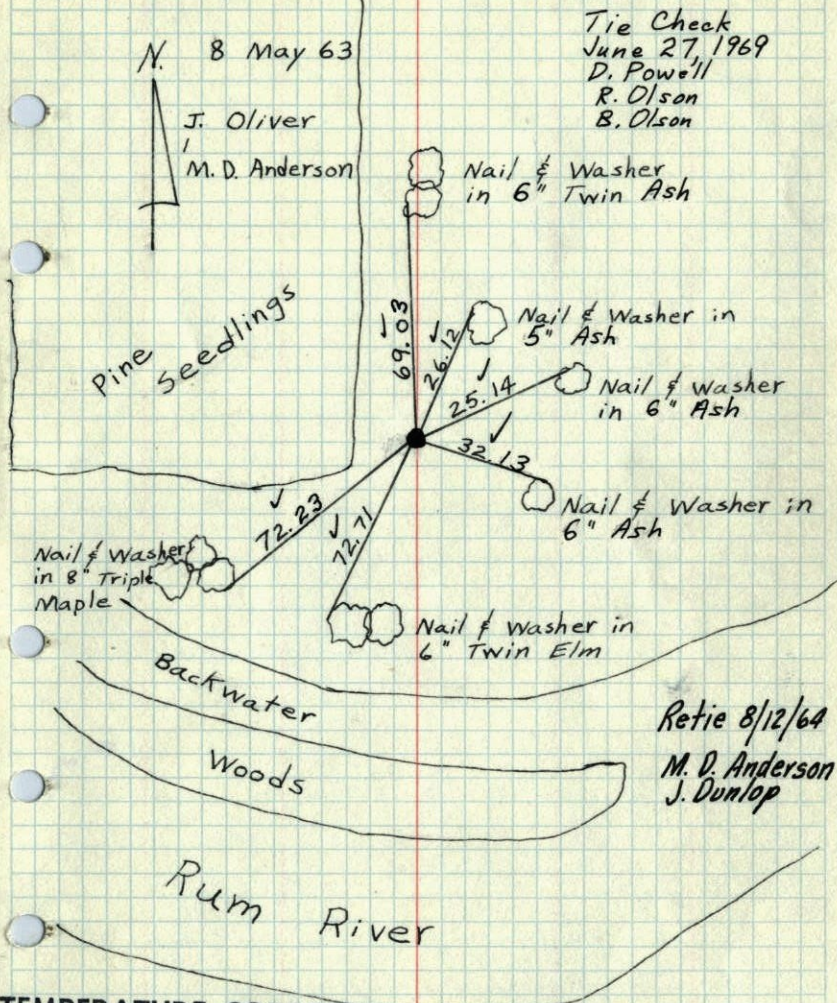 N. 8 May 63
J. Oliver
M. D. Anderson
Tie Check
June 27, 1969
D. Powell
R. Olson
B. Olson
Nail & Washer
in 6" Twin Ash
Pine
Seedlings
69.03
26.12
Nail & Washer in
5" Ash
25.14
Nail & Washer
in 6" Ash
32.13
Nail & Washer in
6" Ash
72.23
72.71
Nail & Washer
in 8" Triple
Maple
Nail & Washer in
6" Twin Elm
Backwater
Retie 8/12/64
M. D. Anderson
J. Dunlop
Woods
Rum River